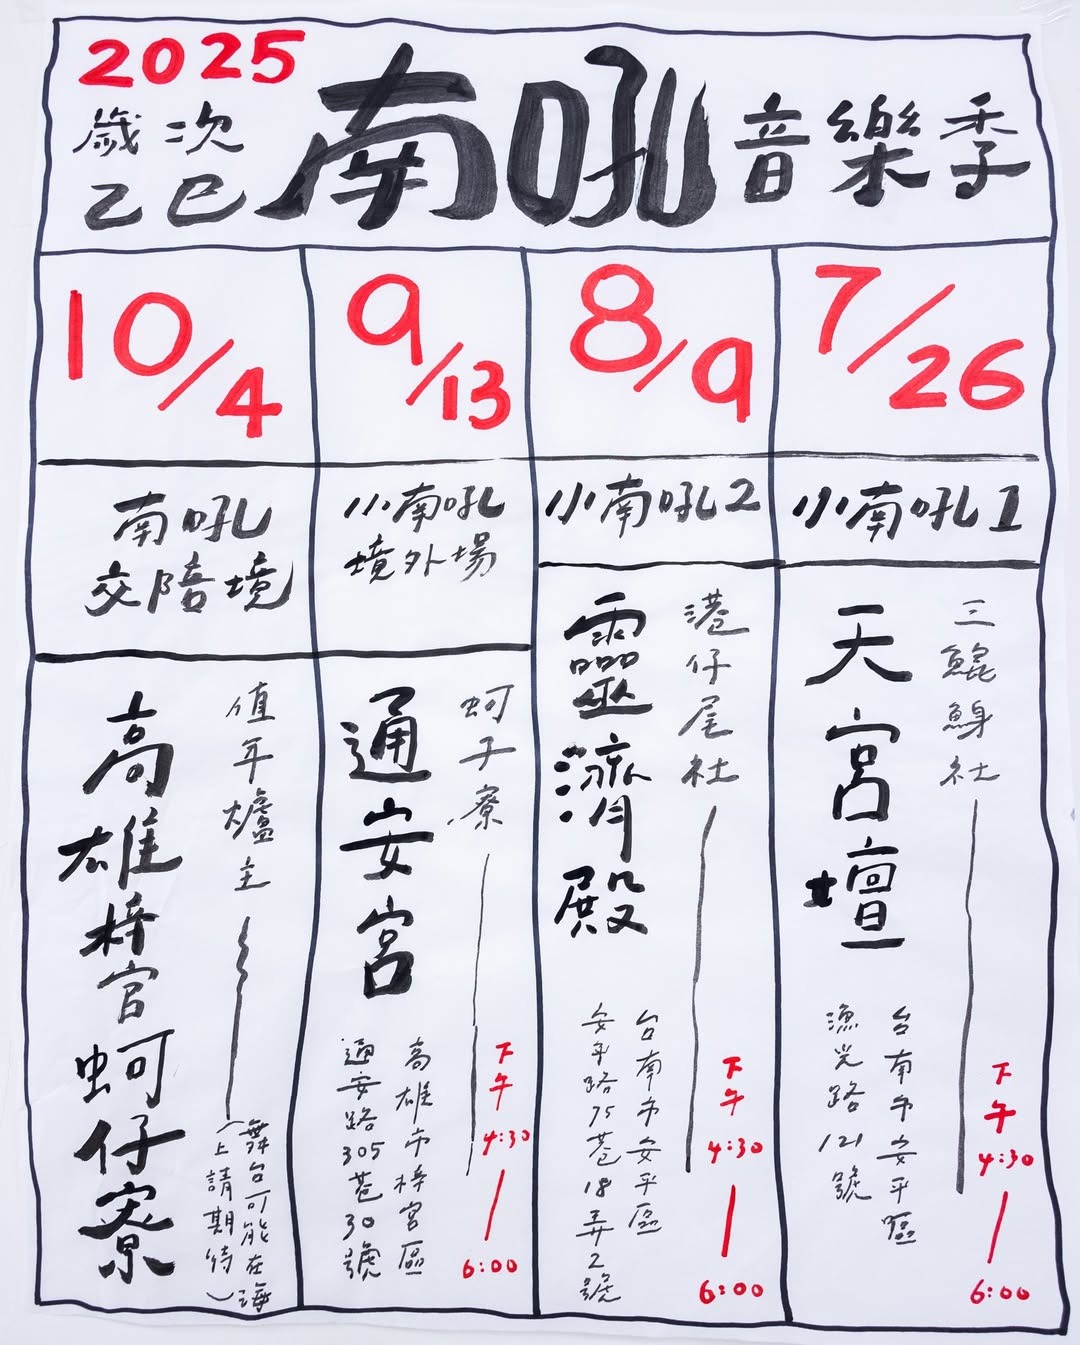 2025
歲次
乙巳
南吼音樂季
7/26
小南吼1
三鯤鯓社
天宮壇
台南市安平區
漁光路121號
下午
4:30
6:00
8/9
小南吼2
港仔尾社
靈濟殿
台南市安平區
安平路75巷18弄2號
下午
4:30
6:00
9/13
小南吼
境外場
蚵子寮
通安宮
高雄市梓官區
通安路305巷30號
下午
4:30
6:00
10/4
南吼
交陪境
值年爐主
高雄梓官蚵仔寮
(舞台可能在海
上請期待)